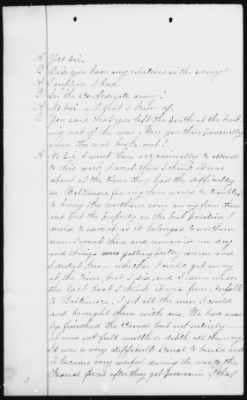 A Yes sir.
Q Did you have any relatives in the army?
A I suppose I had.
Q In the Confederate army?
A No sir. not that I know of.
Q You said that you left the South at the break-
ing out of the war. Were you there personally
when the war broke out?
A No sir. I went there occasionally to attend
to this work. I went there I think it was
about the time they had the difficulty
in Baltimore fearing there would be trouble
to bring the northern men away from there
and put the property in the best position I
could to save it as it belonged to northern
men. I went there and remained one day
and things were getting pretty warm and
I didn't know whether I could get away
at the time, but I did and I came when
the last boat I think it was from Norfolk
to Baltimore. I got all the men I could
and brought them with me. We had near-
ly finished the Canal but not entirely
it was not full width or depth all the way.
It was a very difficult Canal to build and
it became very useful during the war to the
Federal forces after they got possession of that